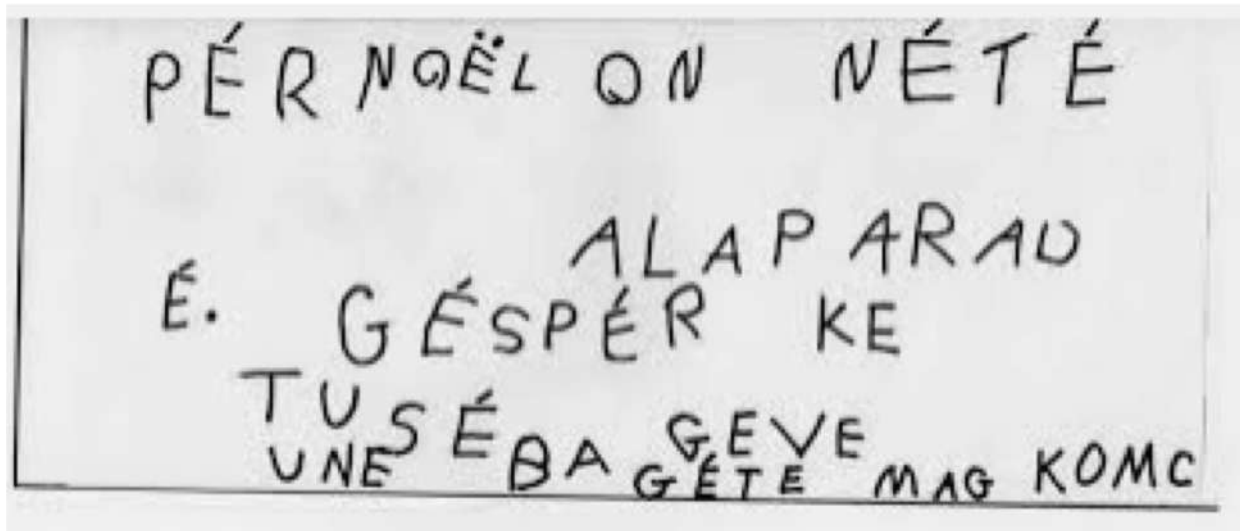 PÉR NOËL ON NÉTÉ
ALAPARAD
É. GÉSPÉR KE
TU SÉ GEVE
UNE BAGÉTE MAG KOMC